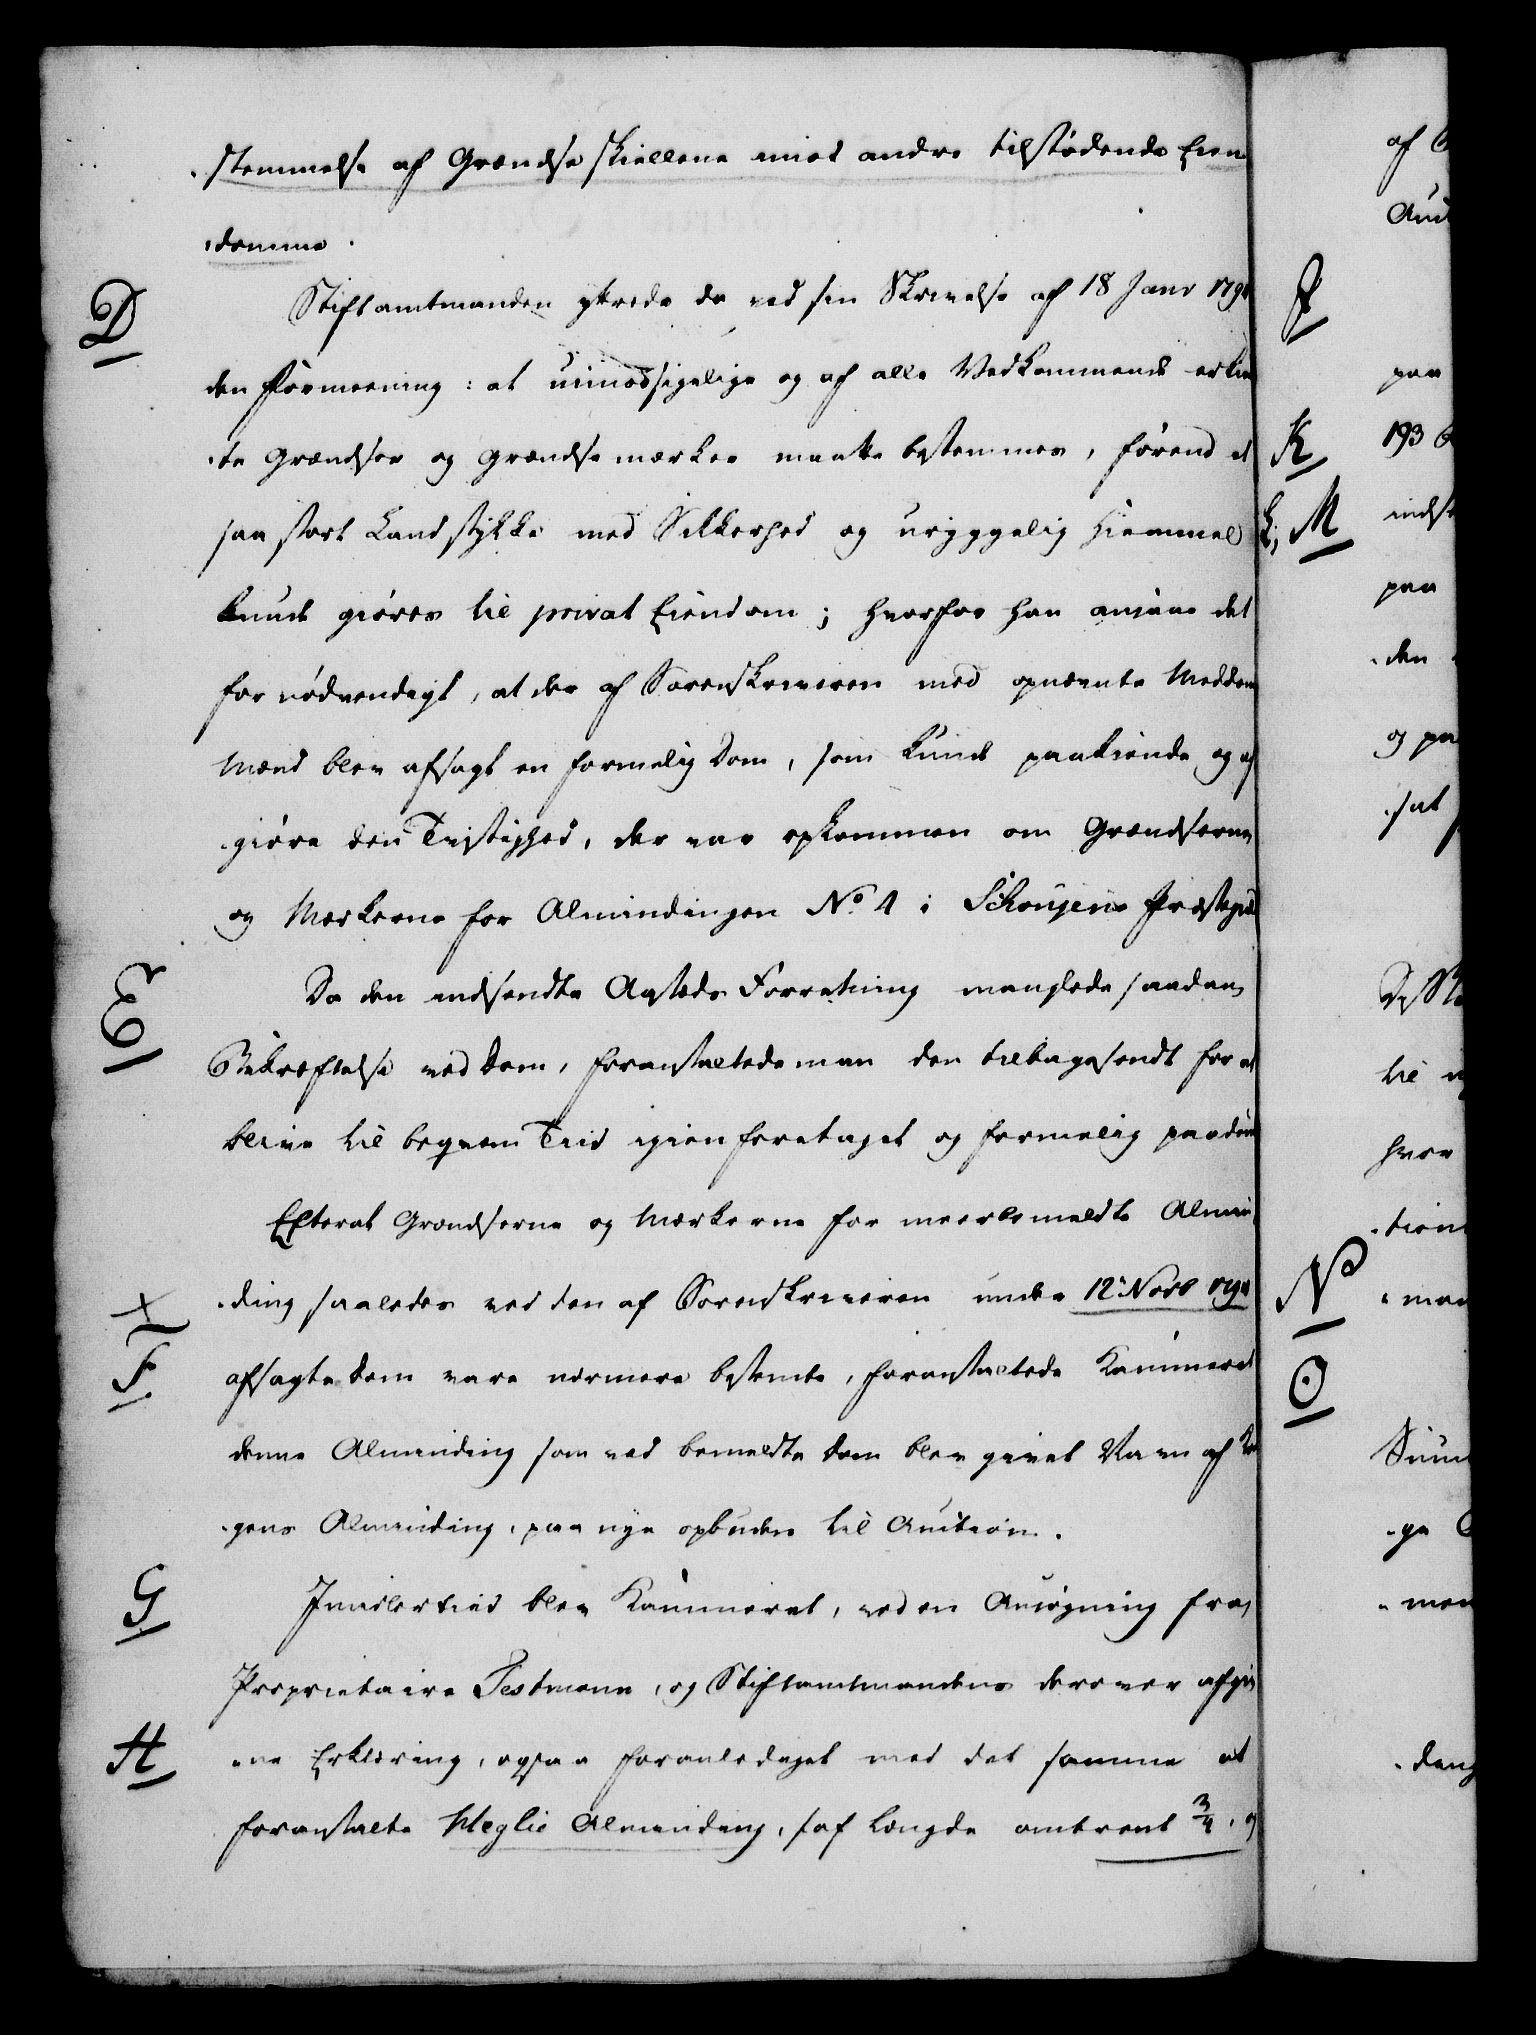 stemmelse af Grændse skiellene mod andre tilstødende Eien
domme.
D
Stiftamtmanden yttrede da ved sin Skrivelse af 18 Janv 179
den Formeening: at uimodsigelige og af alle Vedkommende erkien
te Grændser og Grændsemærker maatte bestemmes, førend et
saa stort Landstykke med Sikkerhed og uryggelig Hiemmel
kunde giøres til privat Eiendom; hvorfor han ansaae det
for nødvendigt, at der af Sorenskriveren med opnævnte Meddoms
Mænd blev afsagt en formelig Dom, som kunde paakiende og af
giøre den Tvistighed, der var opkommen om Grændserne
og Mærkerne for Almindingen No. 4 i Schougens Præstegield
E
Da den indsendte Aasteds Forretning manglede saadan
Bekræftelse ved Dom, foranstaltede man den tilbagesendt for at
blive til beqvem Tiid igien foretaget og formelig paadømt
Efterat Grændserne og Mærkerne for meerbemeldte Almin
ding saaledes ved den af Sorenskriveren under 12 Novb 179
F
afsagte Dom vare nærmere bestemte, foranstaltede Kammeret
denne Alminding som ved bemeldte Dom blev givet Navn af
gens Alminding, paa nye opbuden til Auction.
G
Imidlertid blev Kammeret, ved en Ansøgning fra
Proprietaire Festmann, og Stiftamtmandens derover afgiv
H
ne Erklæring, ogsaa foranlediget med det samme at
foranstalte Meglie Alminding, /af Længde omtrent 3/4, og
af
Aud
J
paa
K 193
L, M
indse
paa
den
og paa
sat
til
hvor
tion
N
man
O
Sum
ge
men
dens